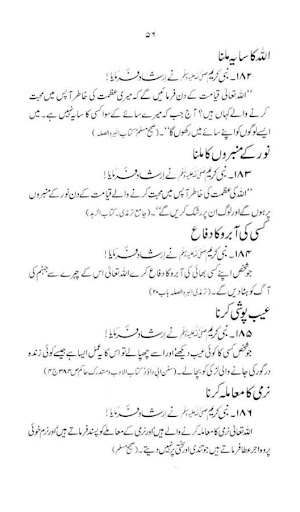 ۵۶
اللہ کا سایہ ملنا
۱۸۲۔ نبی کریم ﷺ نے ارشاد فرمایا!
”اللہ تعالیٰ قیامت کے دن فرمائیں گے کہ میری عظمت کی خاطر آپس میں محبت
کرنے والے کہاں ہیں؟ آج جب کہ میرے سائے کے سوا کسی کا سایہ نہیں ہے۔ میں
ایسے لوگوں کو اپنے سائے میں رکھوں گا“۔ (صحیح مسلم، کتاب البر والصلہ)
نور کے منبروں کا ملنا
۱۸۳۔ نبی کریم ﷺ نے ارشاد فرمایا!
”اللہ کی عظمت کی خاطر آپس میں محبت کرنے والے قیامت کے دن نور کے منبروں
پر ہوں گے اور لوگ ان پر رشک کریں گے“۔ (جامع ترمذی۔ کتاب الزہد)
کسی کی آبرو کا دفاع
۱۸۴۔ نبی کریم ﷺ نے ارشاد فرمایا!
جو شخص اپنے کسی بھائی کی آبرو کا دفاع کرے اللہ تعالیٰ اس کے چہرے سے جہنم کی
آگ کو ہٹا دیں گے۔ (ترمذی البر والصلہ باب ۲۰)
عیب پوشی کرنا
۱۸۵۔ نبی کریم ﷺ نے ارشاد فرمایا!
جو شخص کسی کا کوئی عیب دیکھے اور اسے چھپا لے تو اس کا یہ عمل ایسا ہے جیسے کوئی زندہ
درگور کی جانے والی لڑکی کو بچا لے۔ (سنن ابی داؤد کتاب الادب ومستدرک حاکم ص ۳۸۴ ج ۴)
نرمی کا معاملہ کرنا
۱۸۶۔ نبی کریم ﷺ نے ارشاد فرمایا!
اللہ تعالیٰ نرمی کا معاملہ کرنے والے ہیں اور نرمی کے معاملے کو پسند فرماتے ہیں اور نرم خوئی
پر وہ اجر عطا فرماتے ہیں جو تندی اور سختی پر نہیں دیتے۔ (صحیح مسلم)